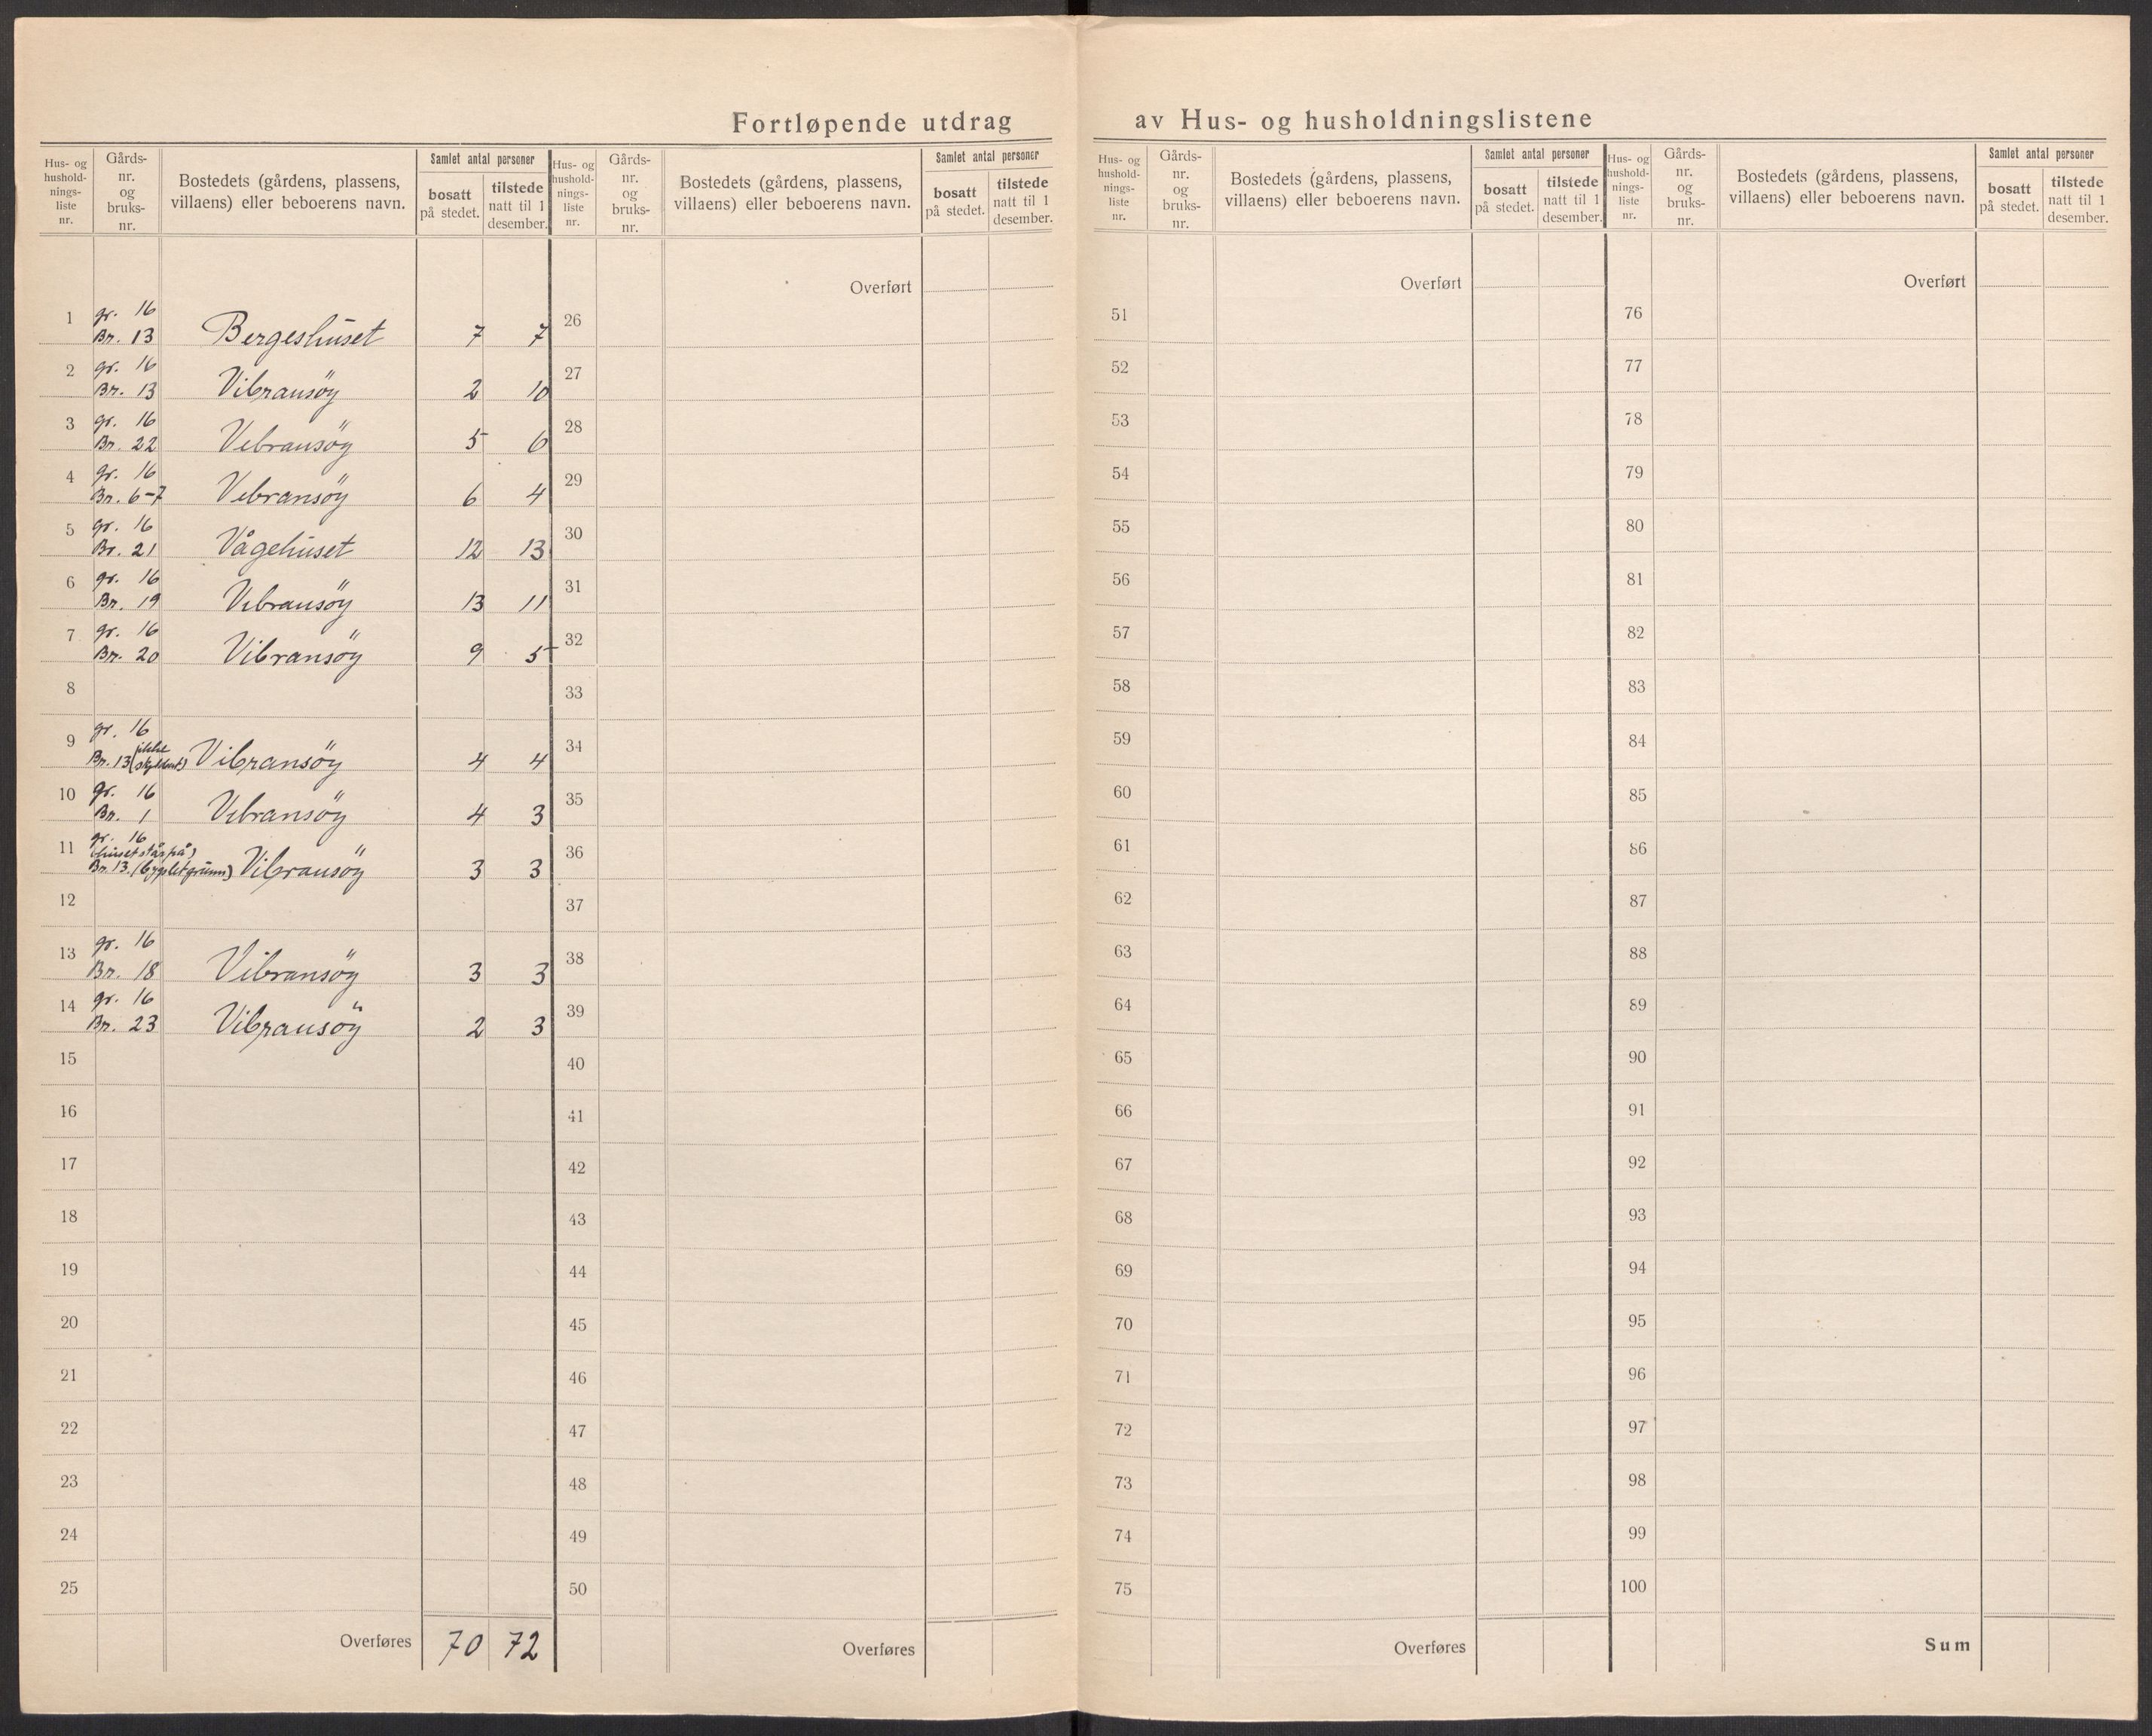 Fortløpende utdrag av Hus- og husholdningslistene
Hus- og hushold-nings-liste nr.
Gårds-nr. og bruks-nr.
Bostedets (gårdens, plassens, villaens) eller beboerens navn.
Samlet antal personer
bosatt på stedet.
tilstede natt til 1 desember.
Hus- og hushold-nings-liste nr.
Gårds-nr. og bruks-nr.
Bostedets (gårdens, plassens, villaens) eller beboerens navn.
Samlet antal personer
bosatt på stedet.
tilstede natt til 1 desember.
Hus- og hushold-nings-liste nr.
Gårds-nr. og bruks-nr.
Bostedets (gårdens, plassens, villaens) eller beboerens navn.
Samlet antal personer
bosatt på stedet.
tilstede natt til 1 desember.
Hus- og hushold-nings-liste nr.
Gårds-nr. og bruks-nr.
Bostedets (gårdens, plassens, villaens) eller beboerens navn.
Samlet antal personer
bosatt på stedet.
tilstede natt til 1 desember.
1 gr. 16
Br. 13 Bergeshuset 7 7
2 gr. 16
Br. 13 Vibransöy 2 10
3 gr. 16
Br. 22 Vebransöy 5 6
4 gr. 16
Br. 6-7 Vebransöy 6 4
5 gr. 16
Br. 21 Vågehuset 12 13
6 gr. 16
Br. 19 Vebransöy 13 11
7 gr. 16
Br. 20 Vibransöy 9 5
8
9 gr. 16
Br. 13 (ikke skyldsat) Vibransöy 4 4
10 gr. 16
Br. 1 Vebransöy 4 3
11 gr. 16
(huset står på)
Br. 13. (bygslet grunn) Vibransöy 3 3
12
13 gr. 16
Br. 18 Vibransöy 3 3
14 gr. 16
Br. 23 Vibransöy 2 3
15
16
17
18
19
20
21
22
23
24
25
Overføres 70 72
Overført
26
27
28
29
30
31
32
33
34
35
36
37
38
39
40
41
42
43
44
45
46
47
48
49
50
Overføres
Overført
51
52
53
54
55
56
57
58
59
60
61
62
63
64
65
66
67
68
69
70
71
72
73
74
75
Overføres
Overført
76
77
78
79
80
81
82
83
84
85
86
87
88
89
90
91
92
93
94
95
96
97
98
99
100
Sum